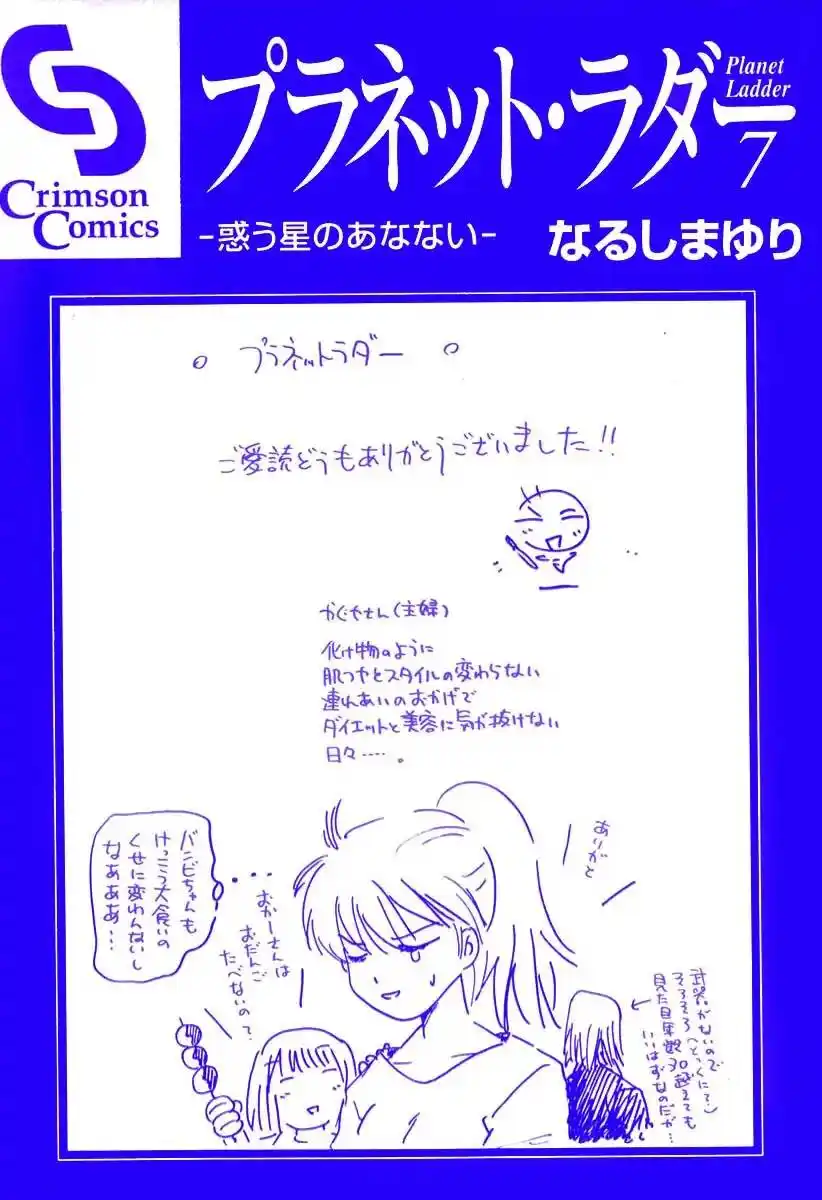 プラネット・ラダー
Planet
Ladder
7
Crimson
Comics
-惑う星のあなない-
なるしまゆり
。プラネットラダー。
ご愛読どうもありがとうございました!!
かぐやさん(主婦)
化け物のように
肌つやとスタイルの変わらない
連れあいのおかげで
ダイエットと美容に気が抜けない
日々……。
ありがと
バンビちゃんも
けっこう大食いの
くせに変わんないし
なあああ…
おかーさんは
おだんご
たべないの?
武器がないので
そろそろ(とっくにて)
見た目年齢30越えても
いいはずなのだが…